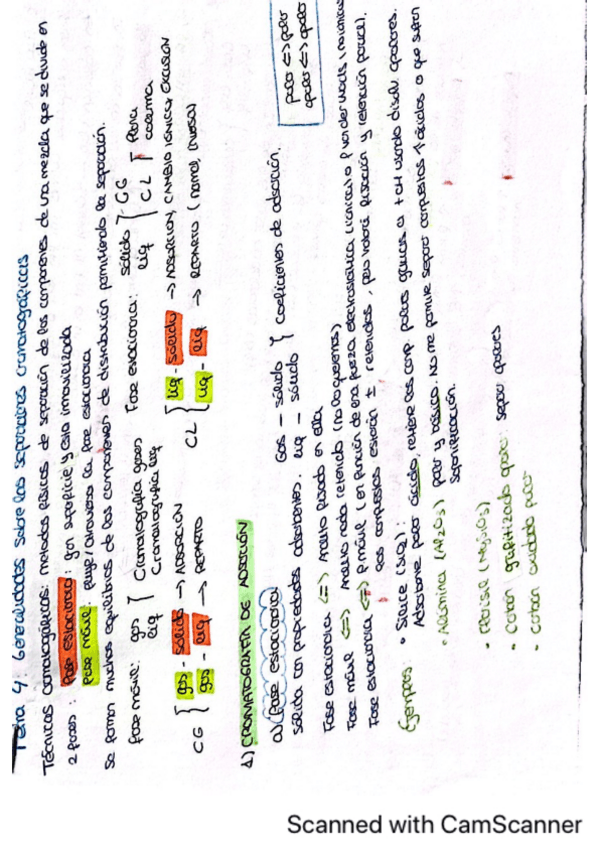 Tema 4: Generalidades sobre las separaciones cromatográficas
Técnicas cromatográficas: métodos físicos de separación de los componentes de una mezcla que se divide en
2 fases: Fase estacionaria: gran superficie y está inmovilizada
Fase móvil: fluye/atraviesa la fase estacionaria
Se forman muchos equilibrios de los componentes de distribución permitiendo la separación.
fase móvil: gas } Cromatografía gases
liq } Cromatografía liq
Fase estacionaria: sólido } CG
liq } CL } Plana
columna
CG { gas - sólido → ADSORCIÓN
gas - liq → REPARTO
CL { liq - sólido → ADSORCIÓN, CAMBIO IÓNICO, EXCLUSIÓN
liq - liq → REPARTO (normal, inversa)
1) CROMATOGRAFÍA DE ADSORCIÓN
a) Fase estacionaria
sólida con propiedades adsorbentes. Gas - sólido
liq - sólido } coeficientes de adsorción.
polar <=> polar
apolar <=> apolar
Fase estacionaria <=> analito fijado en ella
Fase móvil <=> analito nada retenido (no lo queremos)
Fase estacionaria <=> f. móvil (en función de una fuerza electrostática
los compuestos estarán ± retenidos, pero habrá fijación y retención parcial.
Ejemplos: • Sílice (SiO2):
Adsorbente polar ácido, retiene los comp. polares gracias a
• Alúmina (Al2O3) polar y básico. No me permite separar compuestos
saponificación.
• Florisil
• Carbón grafitizado apolar: separar apolares
• Carbón oxidado polar
Scanned with CamScanner